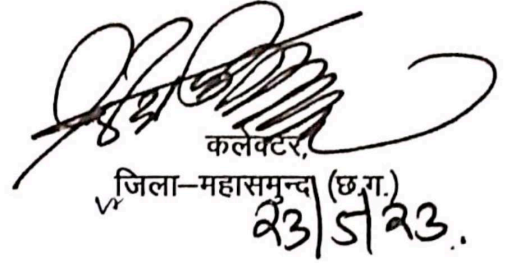 कलेक्टर,
जिला–महासमुन्द (छ.ग.)
२३|5|२३.